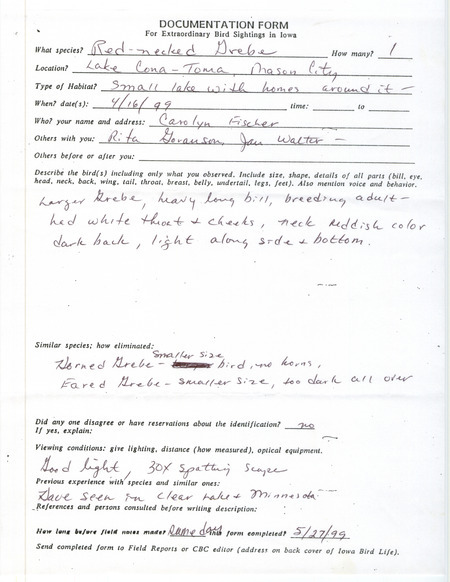 DOCUMENTATION FORM
For Extraordinary Bird Sightings in Iowa
What species? Red-necked Grebe How many? 1
Location? Lake Cona-Toma, Mason City
Type of Habitat? Small lake with homes around it -
When? date(s): 4/16/99 time: to
Who? your name and address: Carolyn Fischer
Others with you: Rita Goranson, Jan Walter -
Others before or after you:
Describe the bird(s) including only what you observed. Include size, shape, details of all parts (bill, eye,
head, neck, back, wing, tail, throat, breast, belly, undertail, legs, feet). Also mention voice and behavior.
Larger Grebe, heavy long bill, breeding adult -
had white throat + cheeks, neck reddish color
dark back, light along side + bottom.
Similar species; how eliminated:
Horned Grebe - smaller size bird, no horns,
Eared Grebe - smaller size, too dark all over
Did any one disagree or have reservations about the identification? no
If yes, explain:
Viewing conditions: give lighting, distance (how measured), optical equipment.
Good light, 30X spotting scope
Previous experience with species and similar ones:
Have seen in Clear Lake + Minnesota
References and persons consulted before writing description:
How long before field notes made? this form completed? 5/27/99
Send completed form to Field Reports or CBC editor (address on back cover of Iowa Bird Life).